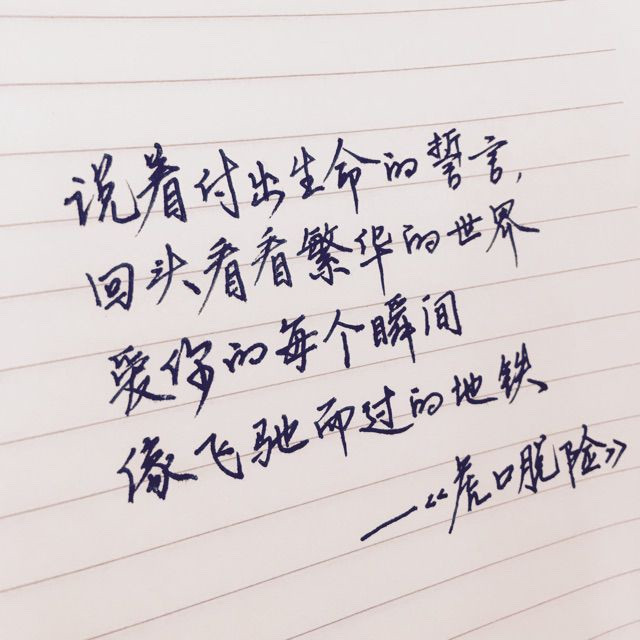 说着付出生命的誓言,
回头看看繁华的世界
爱你的每个瞬间
像飞驰而过的地铁
—《虎口脱险》